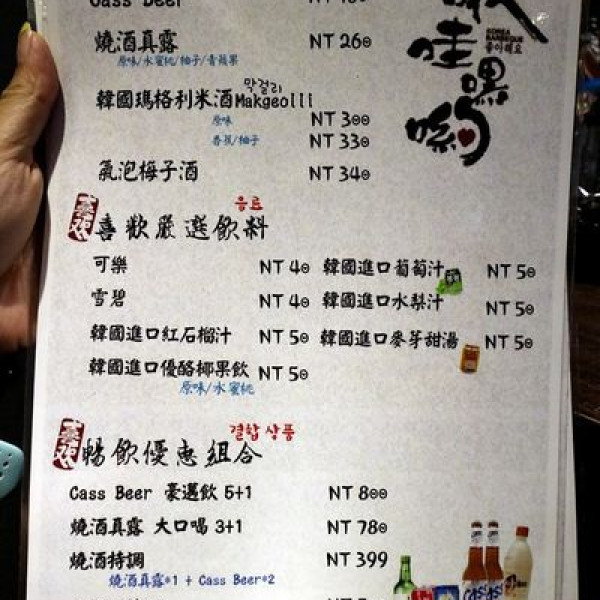 Cass Beer
燒酒真露 NT 260
原味/水蜜桃/柚子/青蘋果
막걸리
韓國瑪格利米酒Makgeolli
原味 NT 300
香蕉/柚子 NT 330
氣泡梅子酒 NT 340
哇嘿喲
KOREA
BARBECUE
좋아해요
음료
喜歡 喜歡嚴選飲料
可樂 NT 40 韓國進口葡萄汁 NT 50
雪碧 NT 40 韓國進口水梨汁 NT 50
韓國進口紅石榴汁 NT 50 韓國進口麥芽甜湯 NT 50
韓國進口優酪椰果飲 NT 50
原味/水蜜桃
결합 상품
喜歡 暢飲優惠組合
Cass Beer 豪邁飲 5+1 NT 800
燒酒真露 大口喝 3+1 NT 780
燒酒特調 NT 399
燒酒真露*1 + Cass Beer*2